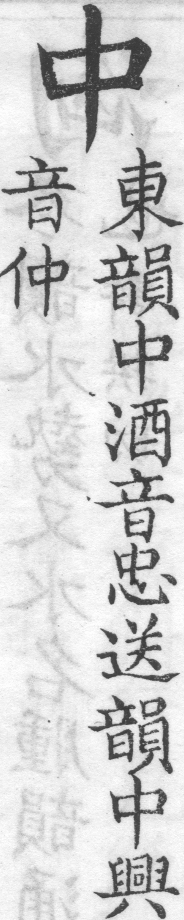 中
東韻中酒音忠送韻中興
音仲